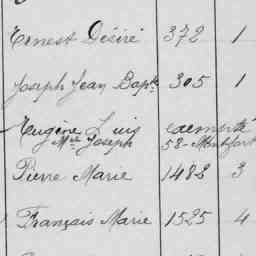 Ernest Désiré 372 1
Joseph Jean Bapte 305 1
Eugène Luis exempté
Mie Joseph 58-Montfort
Pierre Marie 1488 3
François Marie 1525 4